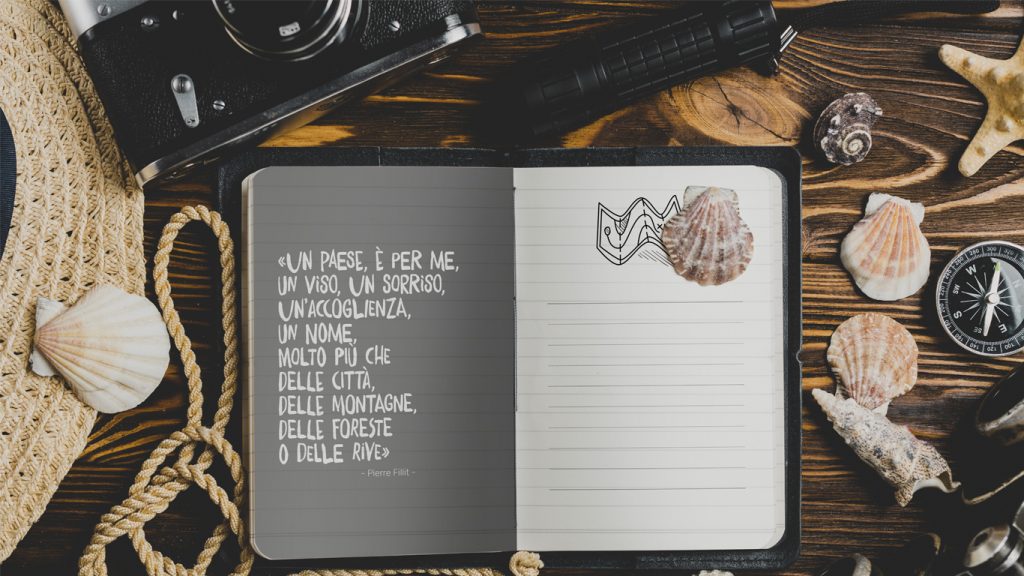 «UN PAESE, È PER ME,
UN VISO, UN SORRISO,
UN'ACCOGLIENZA,
UN NOME,
MOLTO PIÙ CHE
DELLE CITTÀ,
DELLE MONTAGNE,
DELLE FORESTE
O DELLE RIVE»
- Pierre Fillit -